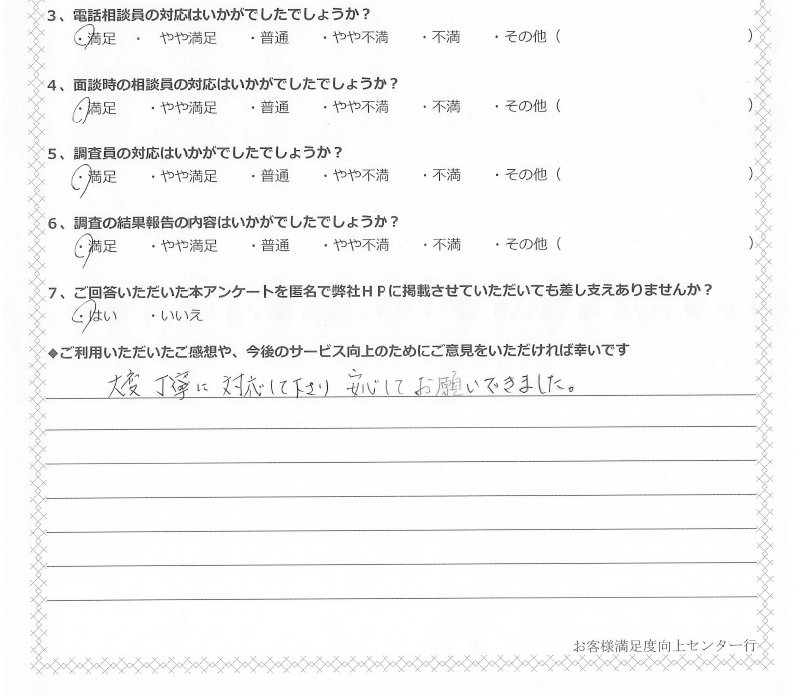 3、電話相談員の対応はいかがでしたでしょうか？
・満足 ・ やや満足 ・普通 ・やや不満 ・不満 ・その他（ ）
4、面談時の相談員の対応はいかがでしたでしょうか？
・満足 ・やや満足 ・普通 ・やや不満 ・不満 ・その他（ ）
5、調査員の対応はいかがでしたでしょうか？
・満足 ・やや満足 ・普通 ・やや不満 ・不満 ・その他（ ）
6、調査の結果報告の内容はいかがでしたでしょうか？
・満足 ・やや満足 ・普通 ・やや不満 ・不満 ・その他（ ）
7、ご回答いただいた本アンケートを匿名で弊社ＨＰに掲載させていただいても差し支えありませんか？
・はい ・いいえ
◆ご利用いただいたご感想や、今後のサービス向上のためにご意見をいただければ幸いです
大変 丁寧に 対応して下さり 安心して お願いできました。
お客様満足度向上センター行